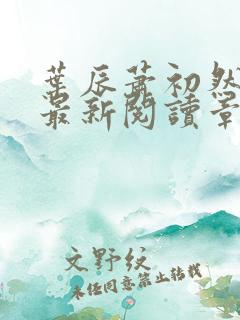 葉辰蕭初然
最新閱讀章
文野紋
未經同意禁止轉載